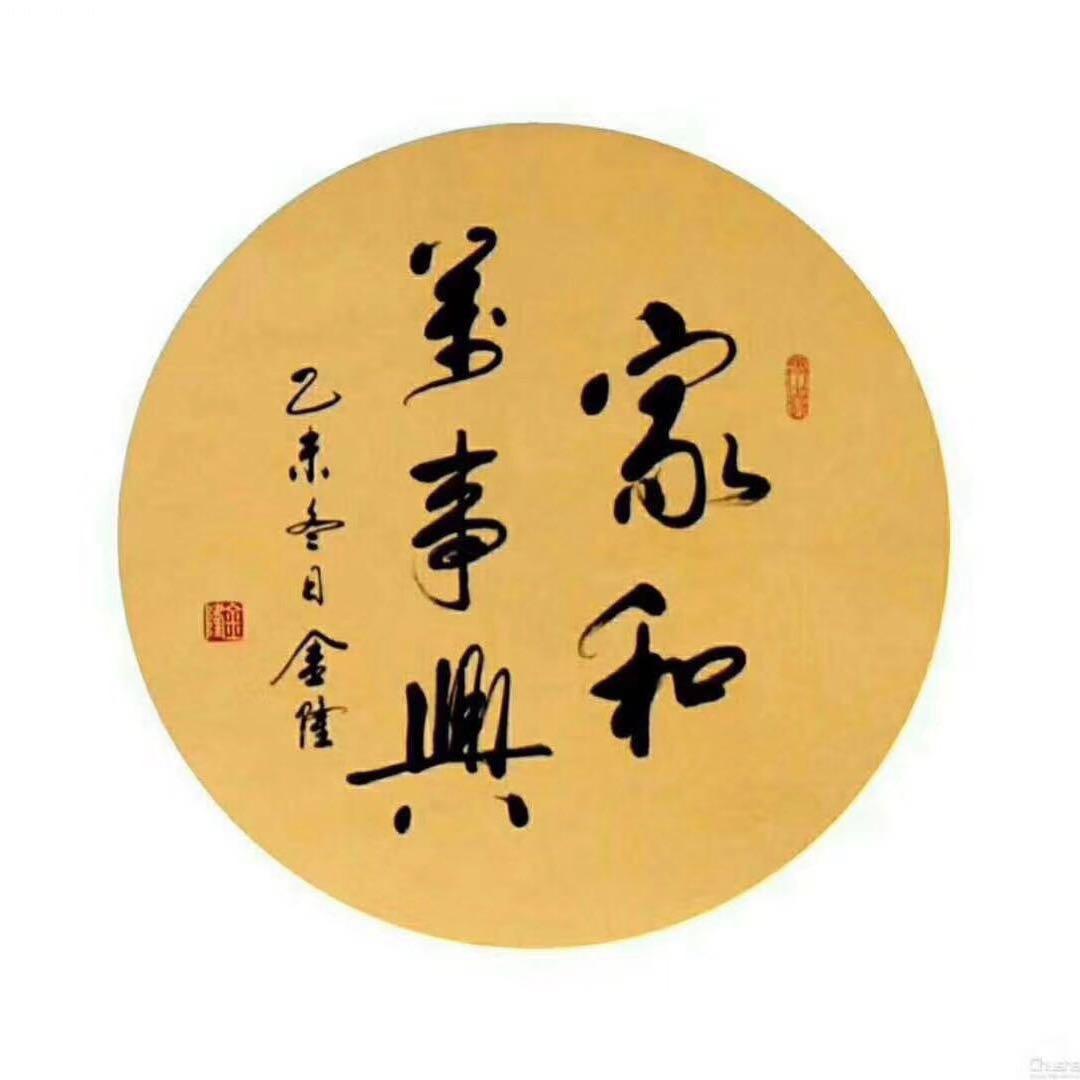 家和
萬事興
乙未冬日金隆